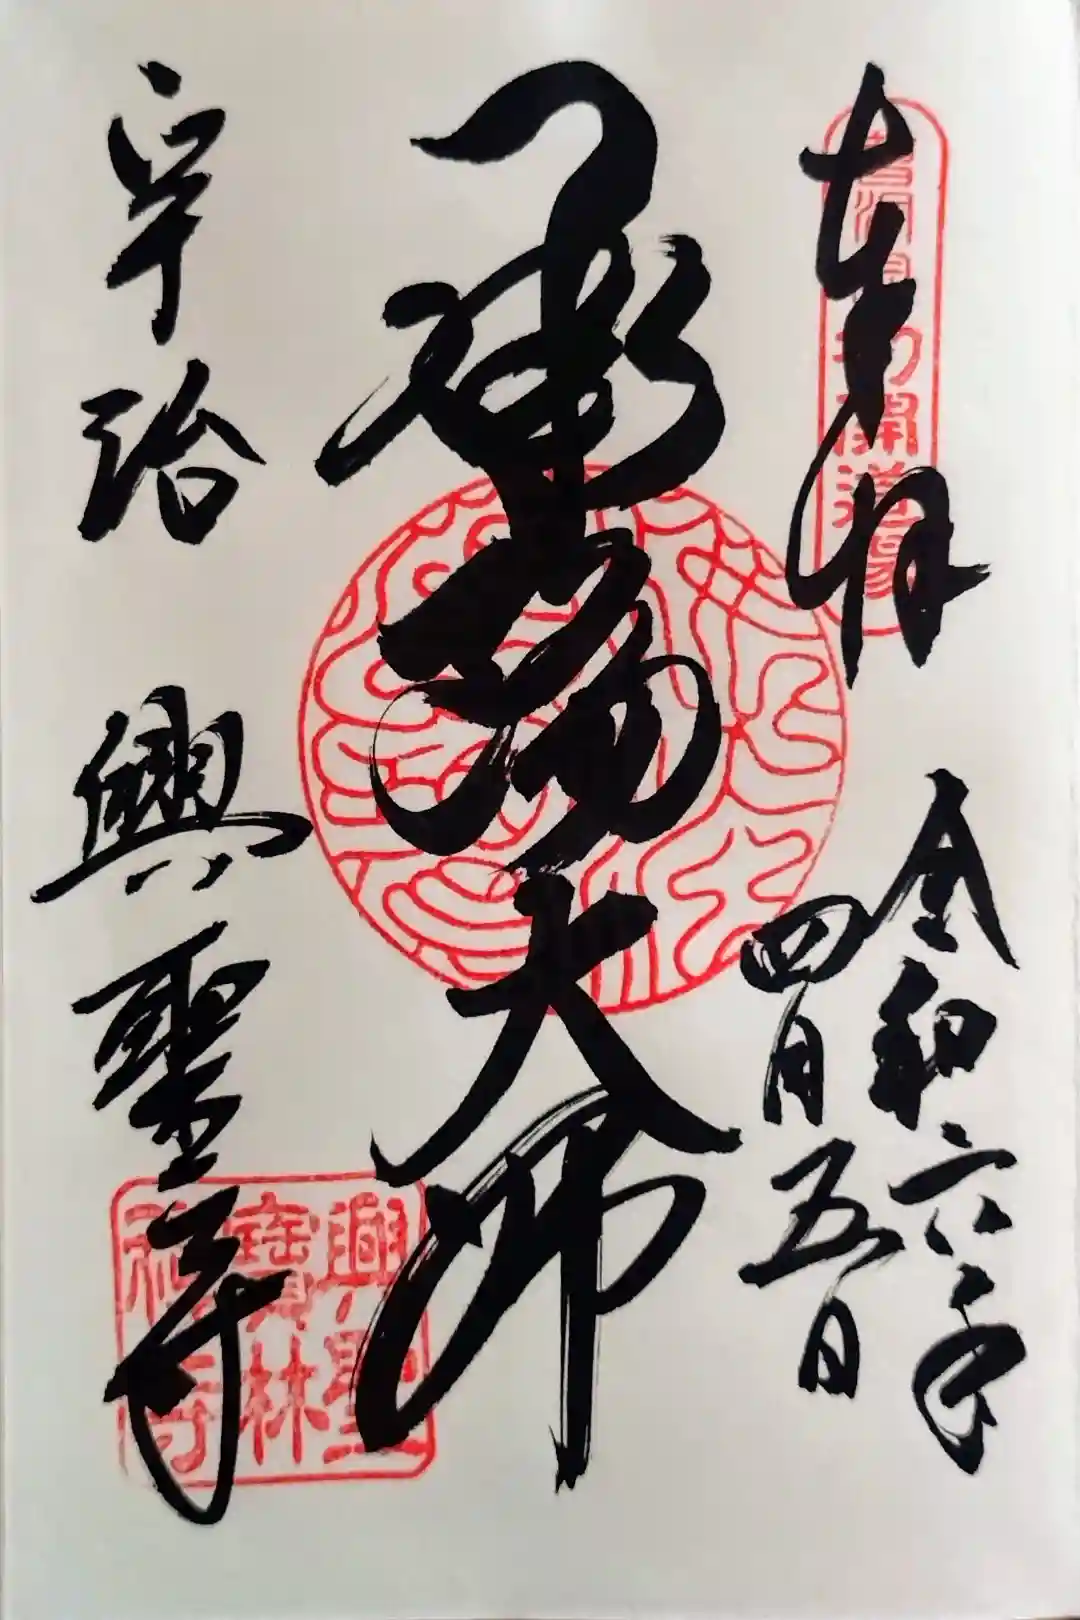 奉拝
令和六年
四月五日
承陽大師
宇治 興聖寺
興聖
寶林
禅寺